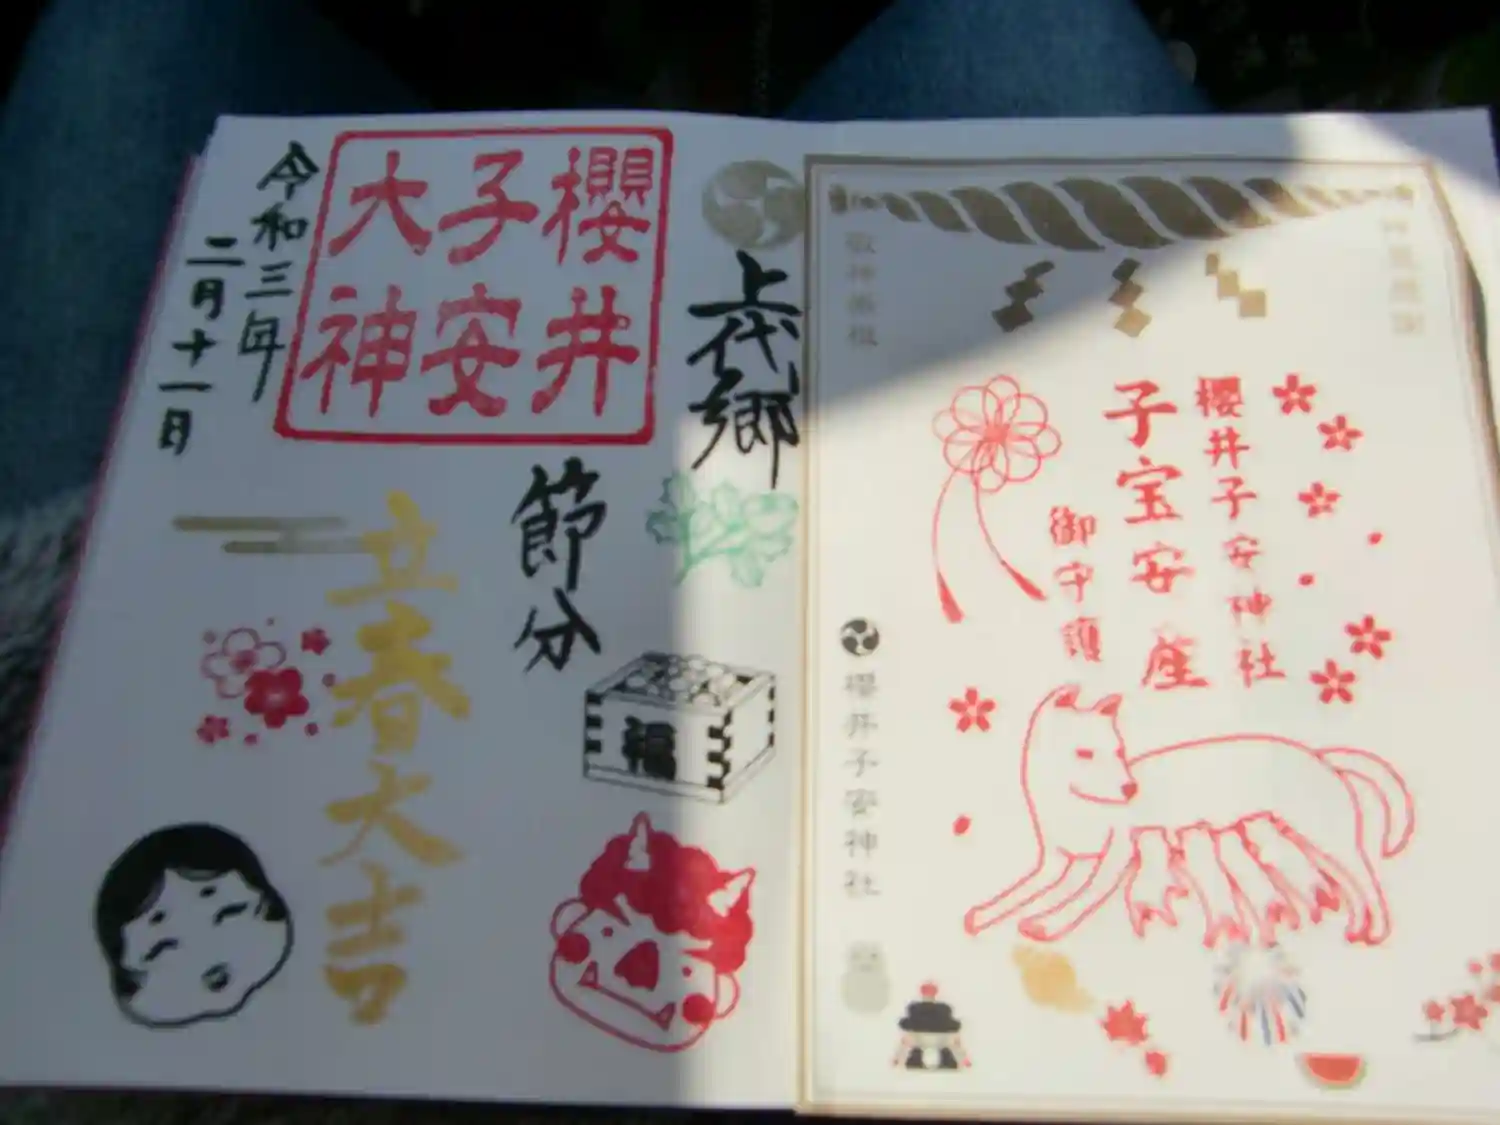 敬神崇祖
櫻井子安神社
子宝安産
御守護
櫻井子安神社
上代郷
櫻井
子安
大神
節分
福
立春大吉
令和三年
二月十一日